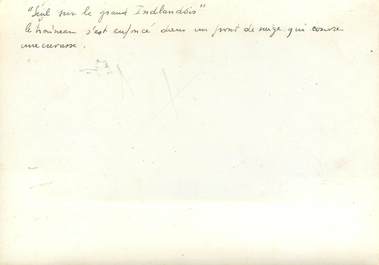 "Seul sur le grand Indlandsis"
le traineau s'est enfoncé dans un pont de neige qui couvre
une crevasse.